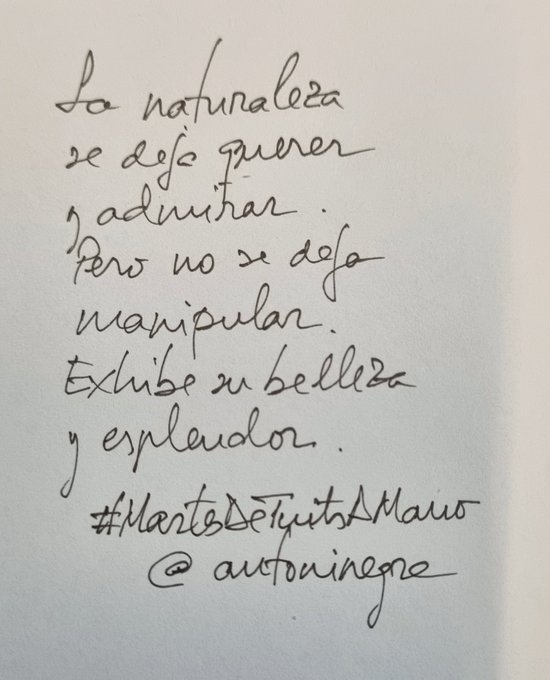 La naturaleza
se deja querer
y admirar.
Pero no se deja
manipular.
Exhibe su belleza
y esplendor.
#MartesDeTuitsAMano
@antoninegre